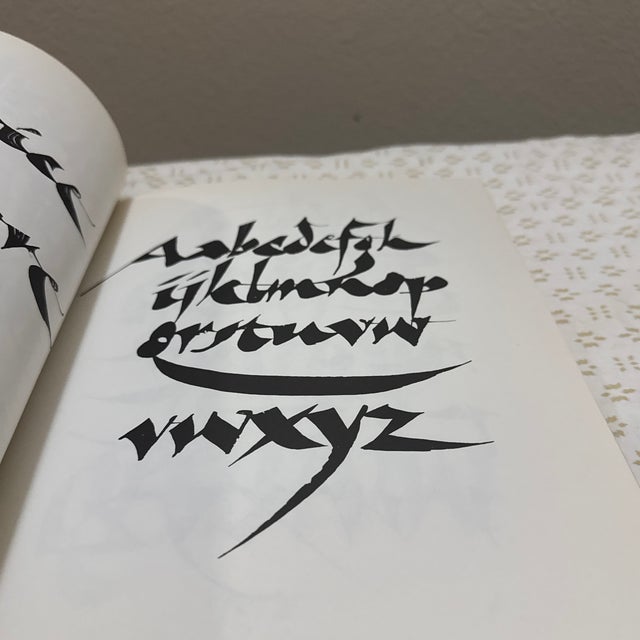 Aabcdefgh
ijklmnop
qrstuvw
vwxyz